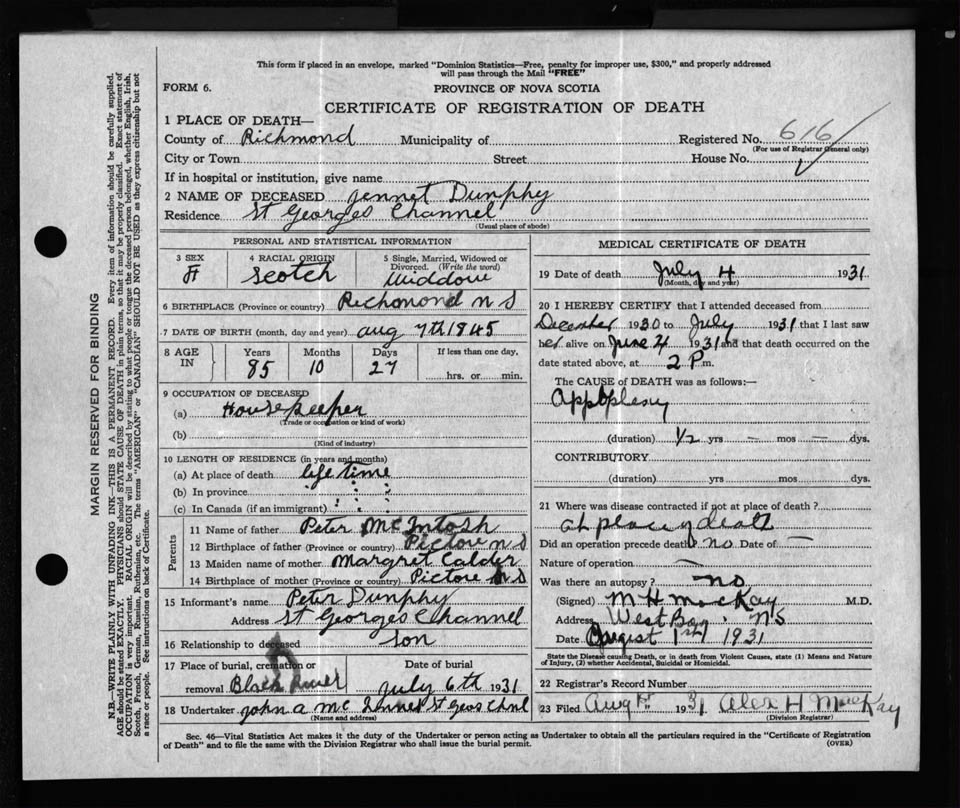 This form if placed in an envelope, marked "Dominion Statistics—Free, penalty for improper use, $300," and properly addressed
will pass through the Mail "FREE"
FORM 6.
PROVINCE OF NOVA SCOTIA
CERTIFICATE OF REGISTRATION OF DEATH
1 PLACE OF DEATH—
County of Richmond Municipality of Registered No. 616
(For use of Registrar General only)
City or Town Street House No.
If in hospital or institution, give name
2 NAME OF DECEASED Jennet Dunphy
Residence St Georges Channel
(Usual place of abode)
PERSONAL AND STATISTICAL INFORMATION
3 SEX 4 RACIAL ORIGIN 5 Single, Married, Widowed or
Divorced. (Write the word)
F Scotch Widdow
6 BIRTHPLACE (Province or country) Richmond N S
7 DATE OF BIRTH (month, day and year) Aug 7th 1845
8 AGE IN Years Months Days If less than one day.
85 10 27 hrs. or min.
9 OCCUPATION OF DECEASED
(a) Housekeeper
(Trade or occupation or kind of work)
(b)
(Kind of industry)
10 LENGTH OF RESIDENCE (in years and months)
(a) At place of death life time
(b) In province
(c) In Canada (if an immigrant)
Parents
11 Name of father Peter McIntosh
12 Birthplace of father (Province or country) Pictou N S
13 Maiden name of mother Margret Calder
14 Birthplace of mother (Province or country) Pictou N S
15 Informant's name Peter Dunphy
Address St Georges Channel
16 Relationship to deceased Son
17 Place of burial, cremation or Date of burial
removal Black River July 6th 1931
18 Undertaker John A Mc St Geos Chnl
(Name and address)
MEDICAL CERTIFICATE OF DEATH
19 Date of death July 4 1931
(Month, day and year)
20 I HEREBY CERTIFY that I attended deceased from
December 1930 to July 1931 that I last saw
her alive on June 4 1931 and that death occurred on the
date stated above, at 2 P m.
The CAUSE OF DEATH was as follows:—
Appoplexy
(duration) 1/2 yrs — mos — dys.
CONTRIBUTORY
(duration) yrs mos dys.
21 Where was disease contracted if not at place of death?
at place of death
Did an operation precede death? no Date of —
Nature of operation —
Was there an autopsy? no
(Signed) M H MacKay M.D.
Address West Bay N S
Date August 1st 1931
State the Disease causing Death, or in death from Violent Causes, state (1) Means and Nature
of Injury, (2) whether Accidental, Suicidal or Homicidal.
22 Registrar's Record Number
23 Filed Aug 1st 1931 Alex H MacKay
(Division Registrar)
Sec. 46—Vital Statistics Act makes it the duty of the Undertaker or person acting as Undertaker to obtain all the particulars required in the "Certificate of Registration
of Death" and to file the same with the Division Registrar who shall issue the burial permit. (OVER)
MARGIN RESERVED FOR BINDING
N.B.—WRITE PLAINLY WITH UNFADING INK—THIS IS A PERMANENT RECORD. Every item of information should be carefully supplied.
AGE should be stated EXACTLY. PHYSICIANS should STATE CAUSE OF DEATH in plain terms, so that it may be properly classified. Exact statement of
OCCUPATION is very important. RACIAL ORIGIN will be described by stating to what people or tongue the deceased person belonged, whether English, Irish,
Scotch, French, German, Russian, Ruthenian, etc. The terms "AMERICAN" or "CANADIAN" SHOULD NOT BE USED as they express citizenship but not
a race or people. See instructions on back of Certificate.